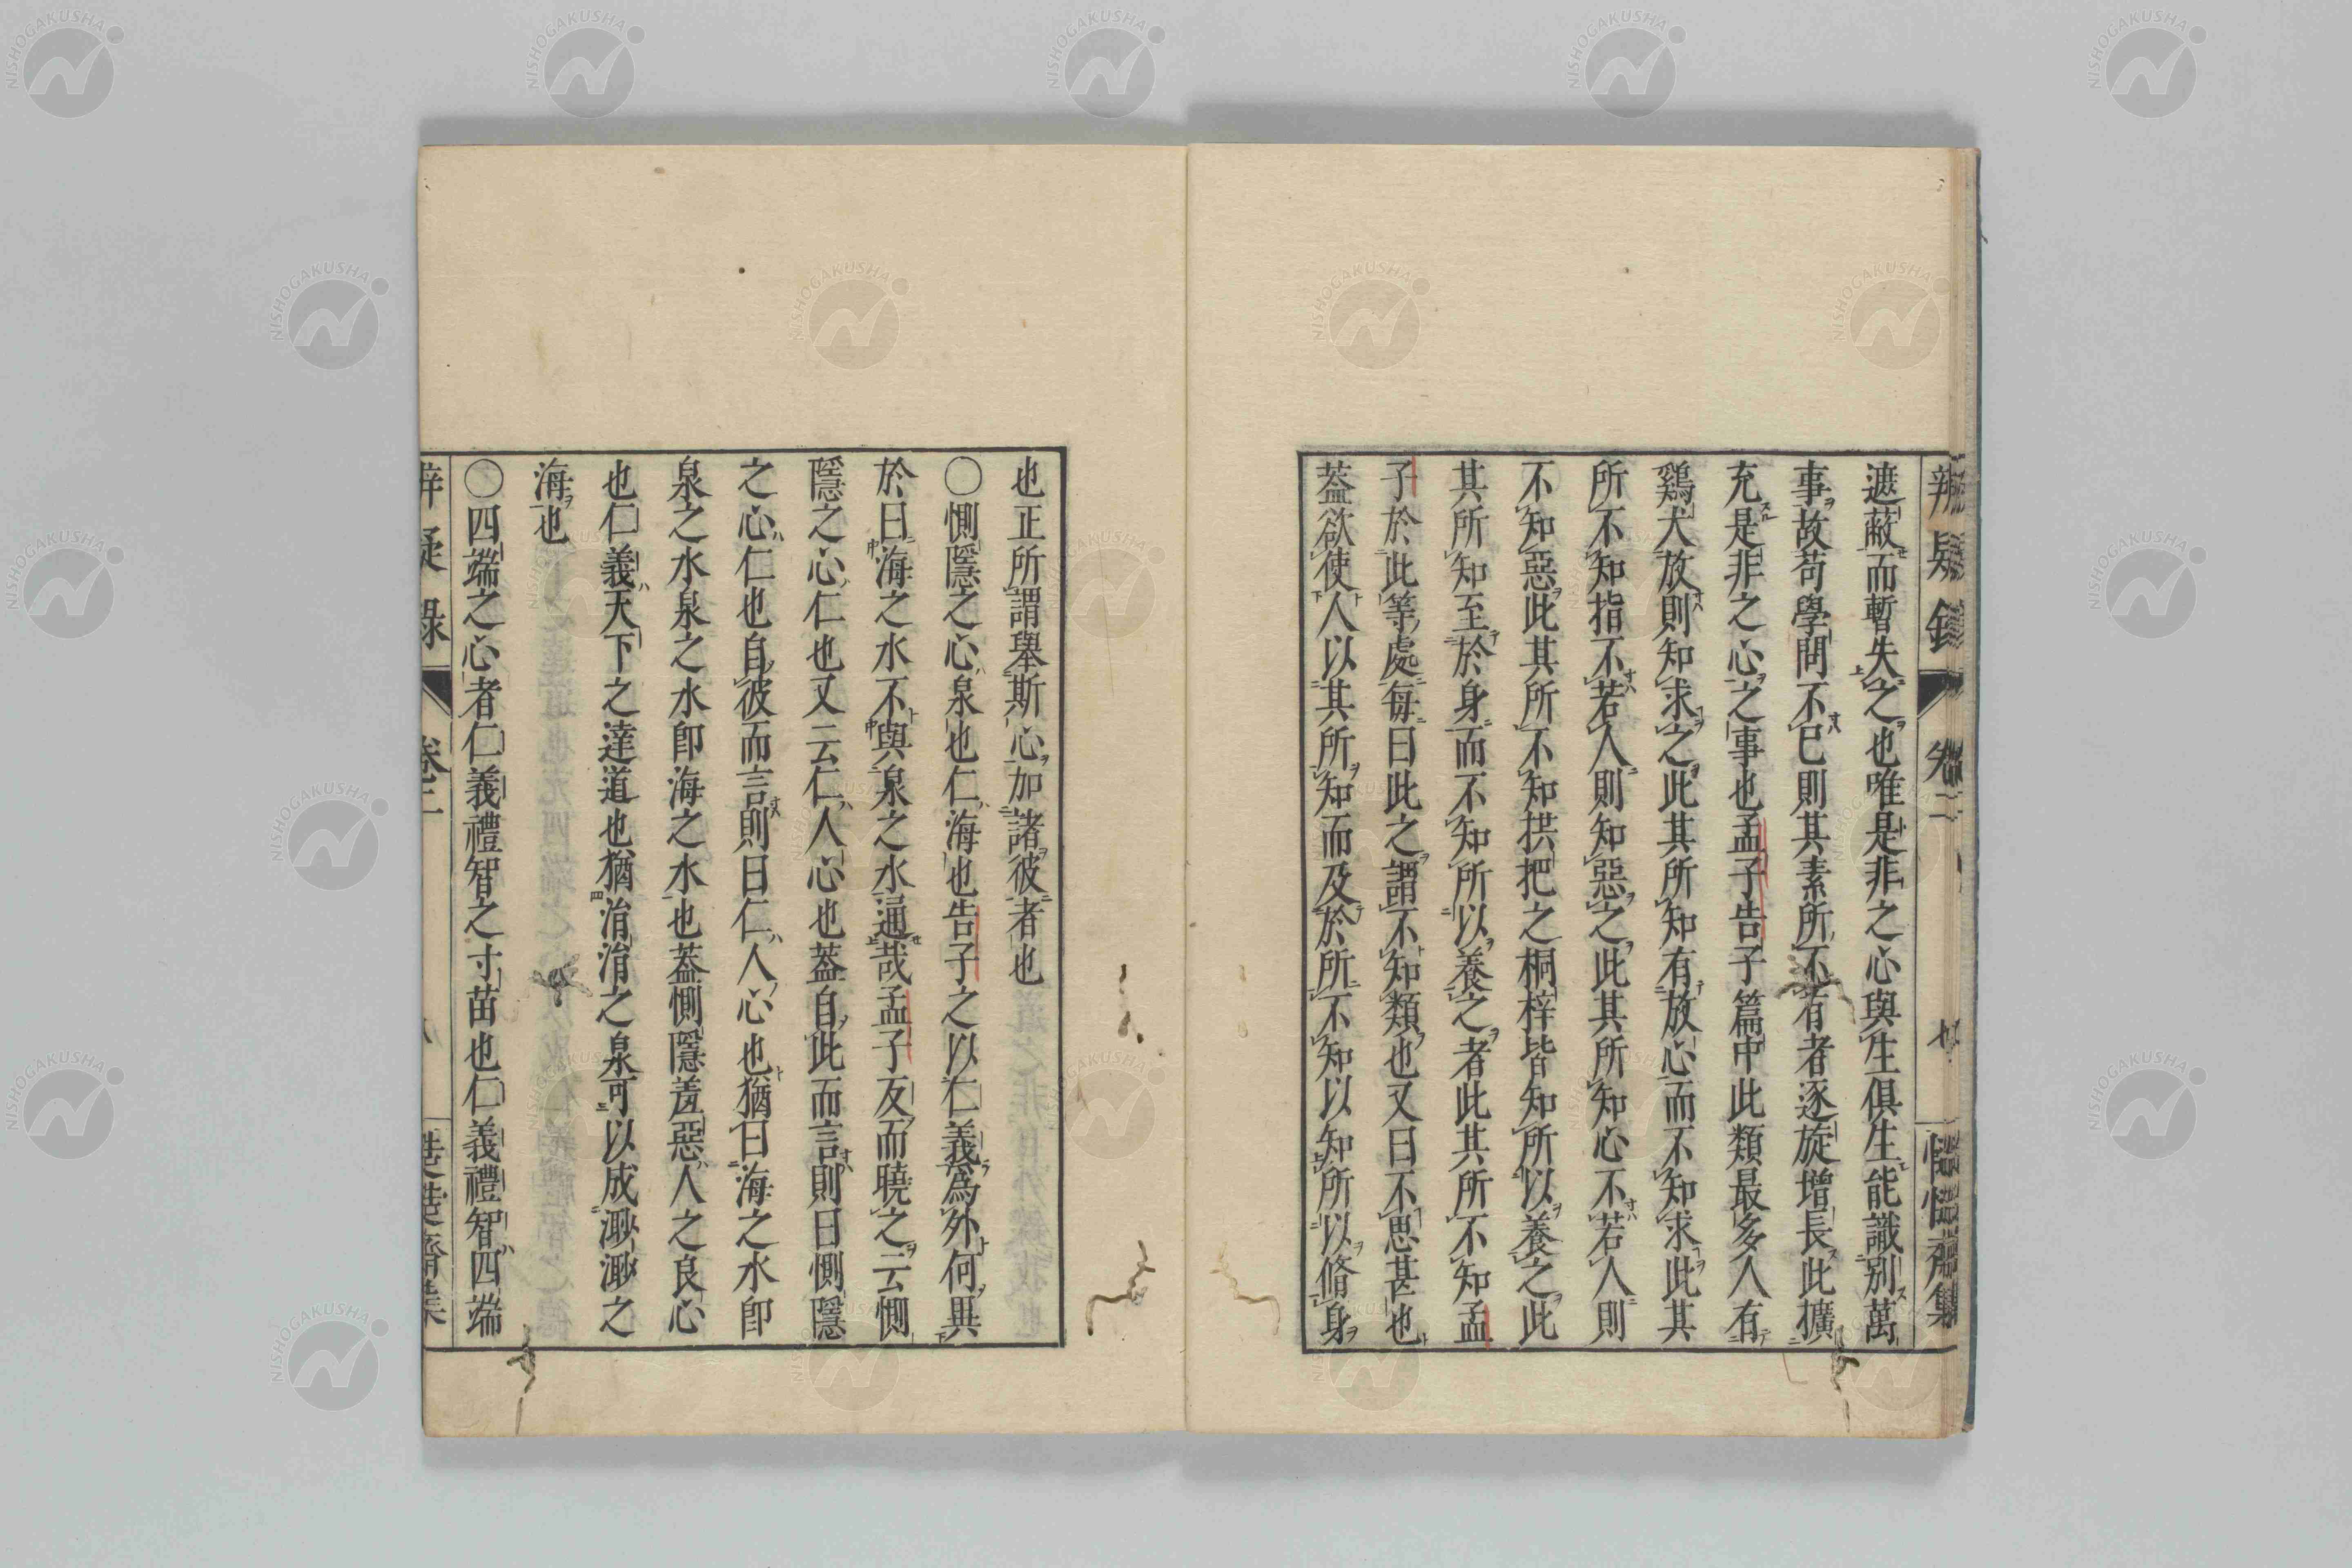 辨疑錄 卷二 七
遮蔽而暫失之也唯是非之心與生俱生能識別萬
事故苟學問不已則其素所不有者逐旋增長此擴
充是非之心之事也孟子告子篇中此類最多人有
鷄犬放則知求之此其所知有放心而不知求此其
所不知指不若人則知惡之此其所知心不若人則
不知惡此其所不知拱把之桐梓皆知所以養之此
其所知至於身而不知所以養之者此其所不知孟
子於此等處每曰此之謂不知類也又曰不思甚也
蓋欲使人以其所知而及於所不知以知所以脩身
也正所謂舉斯心加諸彼者也
〇惻隱之心泉也仁海也告子之以仁義為外何異
於曰海之水不與泉之水通哉孟子反而曉之云惻
隱之心仁也又云仁人心也蓋自此而言則曰惻隱
之心仁也自彼而言則曰仁人心也猶曰海之水即
泉之水泉之水即海之水也蓋惻隱羞惡人之良心
也仁義天下之達道也猶涓涓之泉可以成溟渤之
海也
〇四端之心者仁義禮智之寸苗也仁義禮智四端
辨疑錄 卷二 八